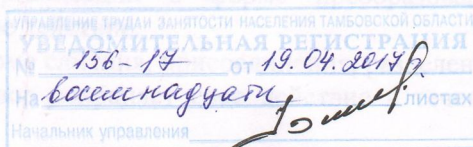 УПРАВЛЕНИЕ ТРУДА И ЗАНЯТОСТИ НАСЕЛЕНИЯ ТАМБОВСКОЙ ОБЛАСТИ
УВЕДОМИТЕЛЬНАЯ РЕГИСТРАЦИЯ
№ 156-17 от 19.04.2017г.
На восемнадцати листах
Начальник управления